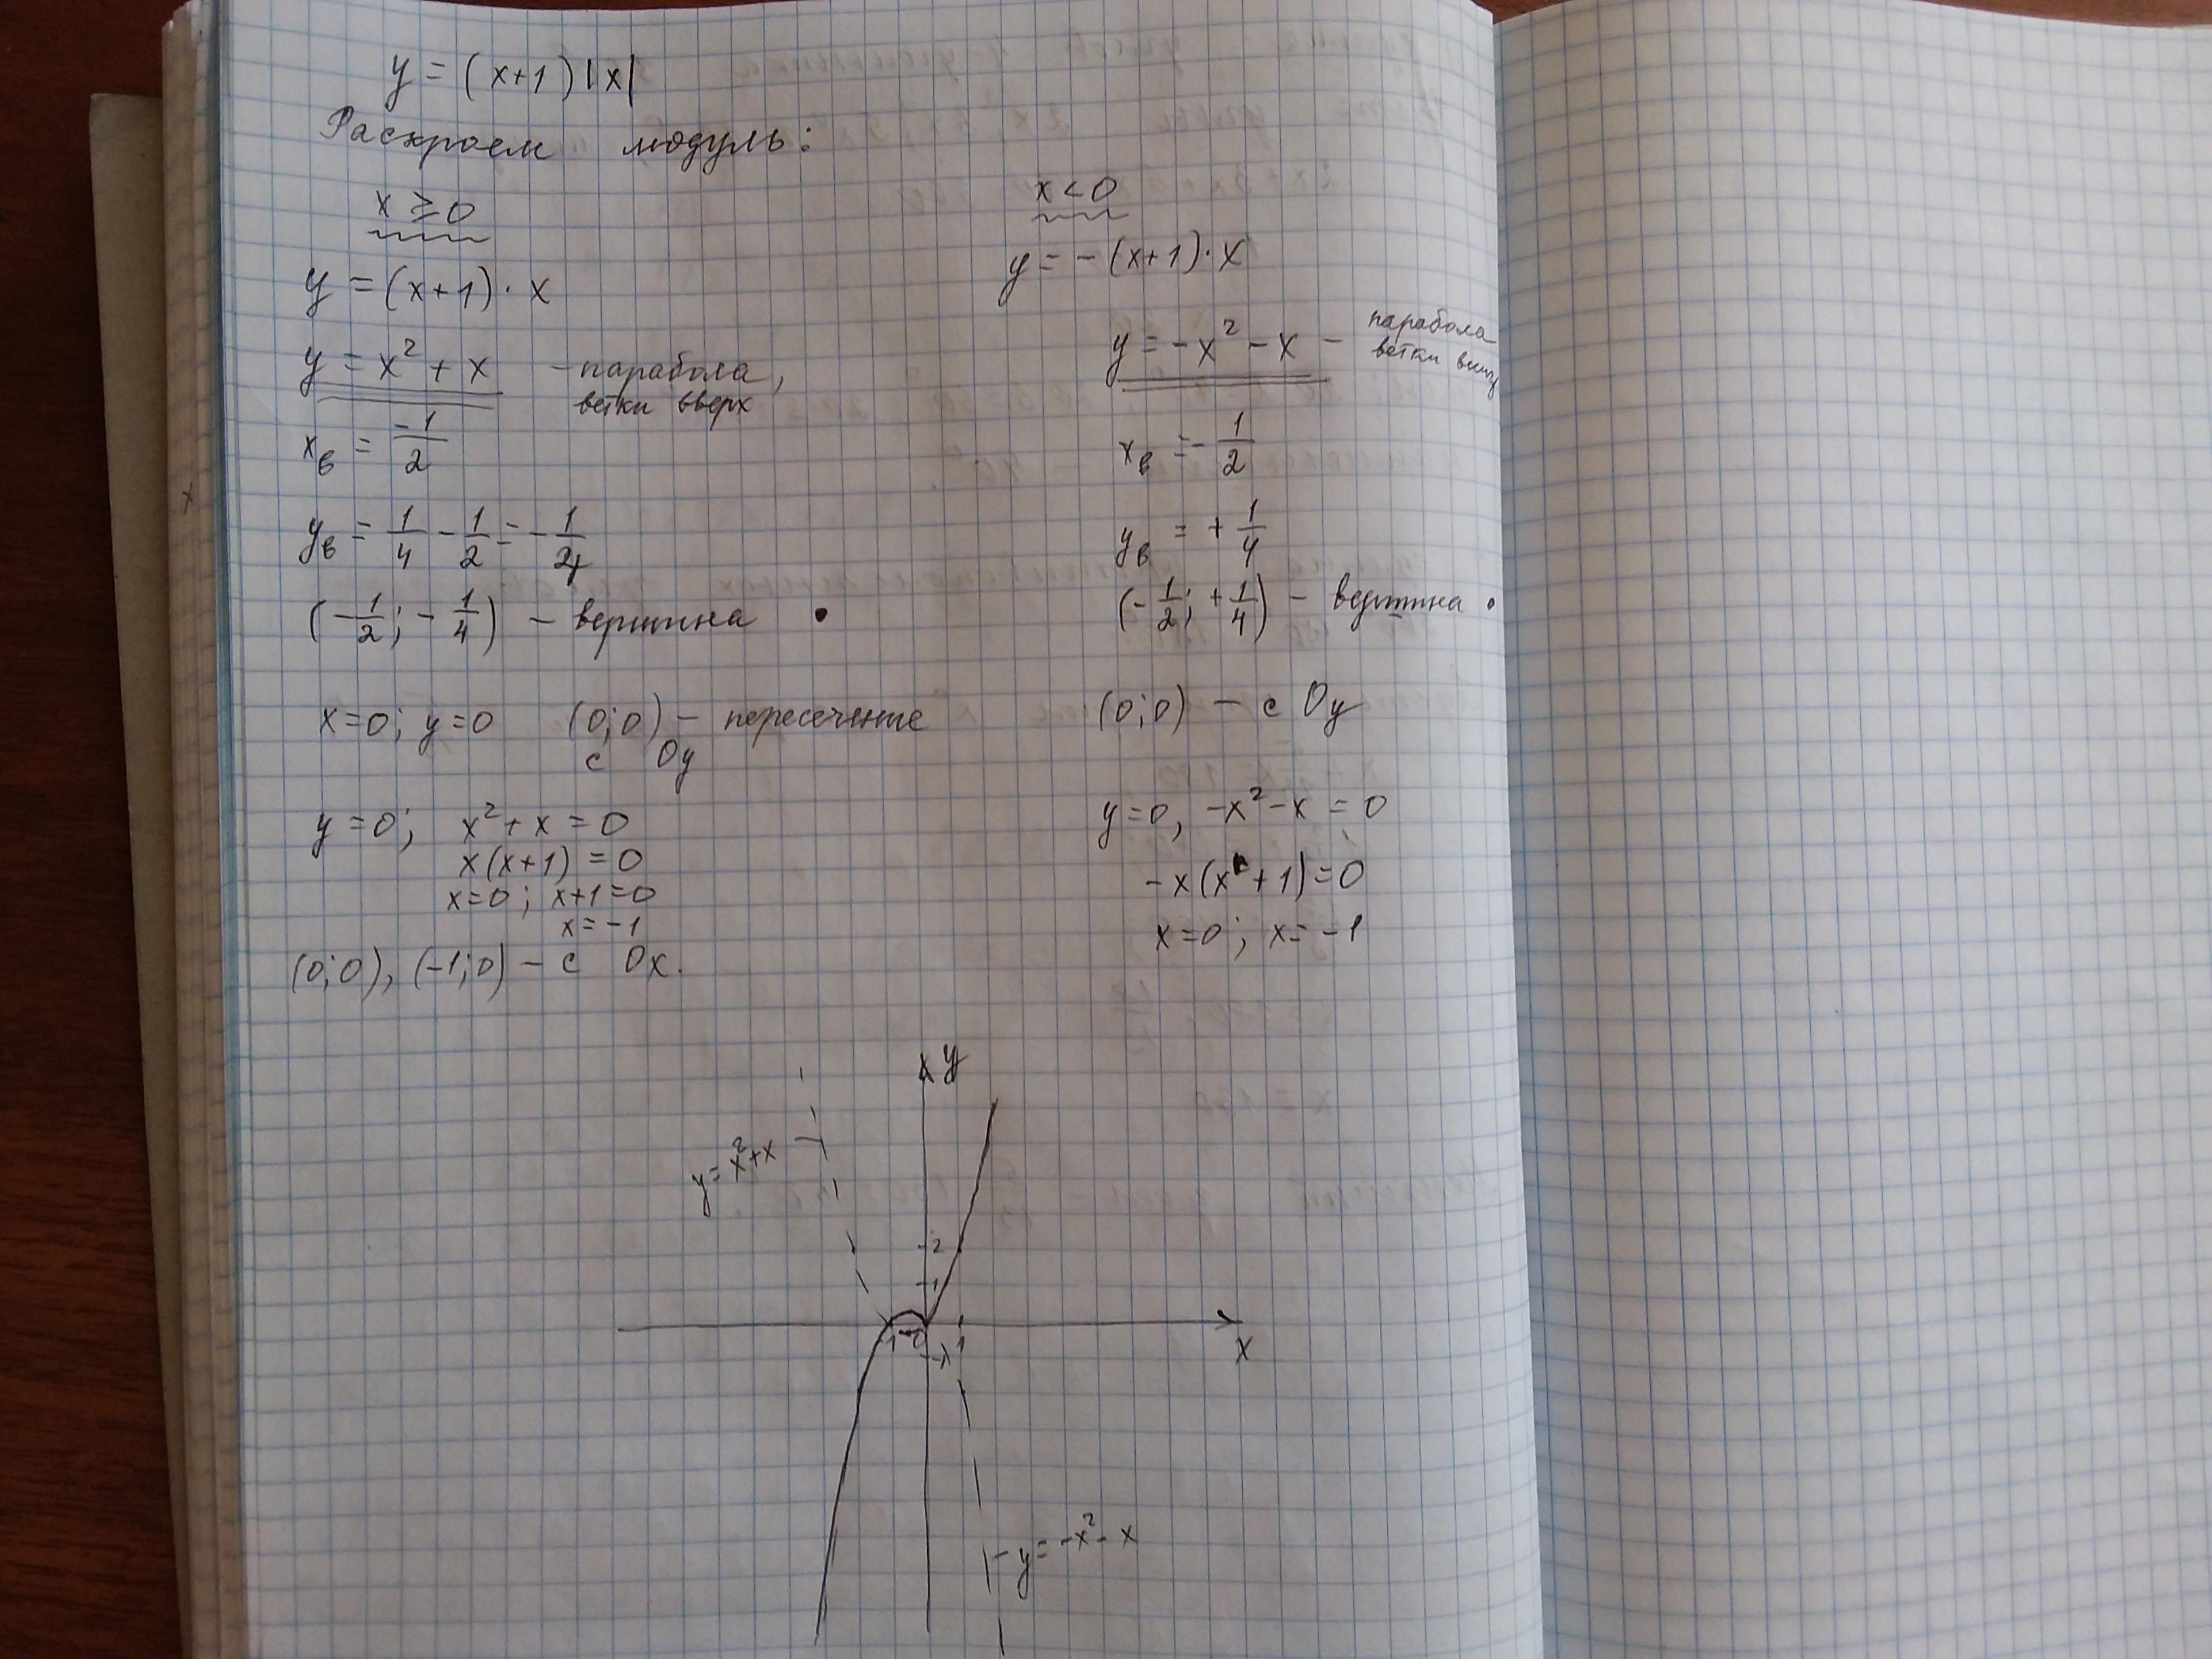 y = (x+1)|x|
Раскроем модуль:
x ≥ 0
y = (x+1) · x
y = x² + x – парабола,
ветки вверх
xв = -1/2
yв = 1/4 - 1/2 = - 1/4
(-1/2; -1/4) – вершина •
x=0; y=0 (0;0) – пересечение
с Oy
y=0; x²+x=0
x(x+1)=0
x=0; x+1=0
x=-1
(0;0), (-1;0) – с Ox.
x<0
y = -(x+1)·x
y = -x² - x – парабола
ветки вниз
xв = - 1/2
yв = + 1/4
(-1/2; +1/4) – вершина •
(0;0) – с Oy
y=0, -x²-x = 0
-x(x+1)=0
x=0; x=-1
y
y=x²+x
2
1
-1 0 1
-1
x
y=-x²-x